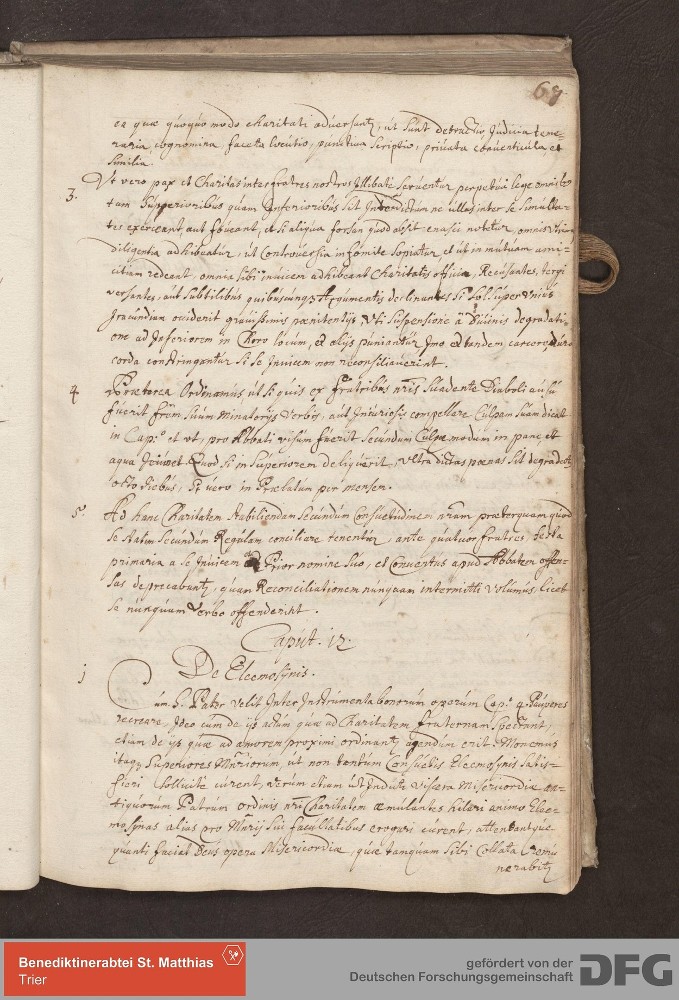 67
ea quæ quoquo modo charitati adversantz, ut sunt detractio, Judicia teme-
raria, cognomina, faceta locutio, punctiva scriptio, privata conventicula et
similia.
3. Ut vero pax et Charitas inter fratres nostros Illibate serventur perpetua lege
tum Superioribus quam Inferioribus sit Interdictum ne ullas inter se simulta-
tes exerceant, aut foveant, et si aliqua forsan quod absit enasci notetur, omnis
diligentia adhibeatur, ut controversia in fomite sopiatur, et ut in mutuam ami-
citiam redeant, omnia sibi invicem adhibeant Charitatis officia, Recusantes, tergi
versantes, aut subtilibus quibuscunqz Argumentis declinantes si sol super unius
Iracundiam occiderit gravissimis pænitentiis, uti suspensione a divinis degradati-
one ad Inferiorem in Choro locum, et aliis puniantur Imo et tandem carcere,
corda constringantur si se Invicem non reconsiliaverint.
4 Præterea Ordinamus ut si quis ex fratribus nris Suadente Diaboli ausu
fuerit frem suum Minatoriis verbis, aut Iniuriosis compellare Culpam suam dicat
in Cap.o et ut, pro Abbati visum fuerit secundum Culpæ modum in pane et
aqua Jeiunet. Quod si in superiorem deliquerit, ultra dictas poenas sit degradat
octo diebus, si vero in Prælatum per mensem.
5 Ad hanc Charitatem stabiliendam secundum Consuetudinem nram præterquam quod
se statim secundum Regulam conciliare tenentur, ante quatuor fratres, festa
primaria a se Invicem Prior nomine suo, et Conventus apud Abbatem offen-
sas deprecabuntz, quam Reconciliationem nunquam intermitti volumus, licet
se nunquam verbo offenderint.
Caput. 12.
De Eleemosynis.
1 Cum S. Pater velit Inter Instrumenta bonorum operum Cap.o 4. Pauperes
recreare, Ideo cum de iis actum quæ ad Charitatem fraternam spectant,
etiam de iis quæ ad amorem proximi ordinantz agendum erit. Monemus
itaqz Superiores Mnriorum, ut non tantum Consuetis Eleemosynis satis-
fieri sollicite curent, verum etiam ut Induti viscera Misericordiæ an-
tiquorum Patrum ordinis nri Charitatem æmulantes hilari animo Elee-
mosynas alias pro Mnrij sui facultatibus erogari curent, attendantque
quanti faciat Deus opera Misericordiæ, quæ tamquam sibi Collata remu
nerabitz
Benediktinerabtei St. Matthias
Trier
gefördert von der
Deutschen Forschungsgemeinschaft
DFG